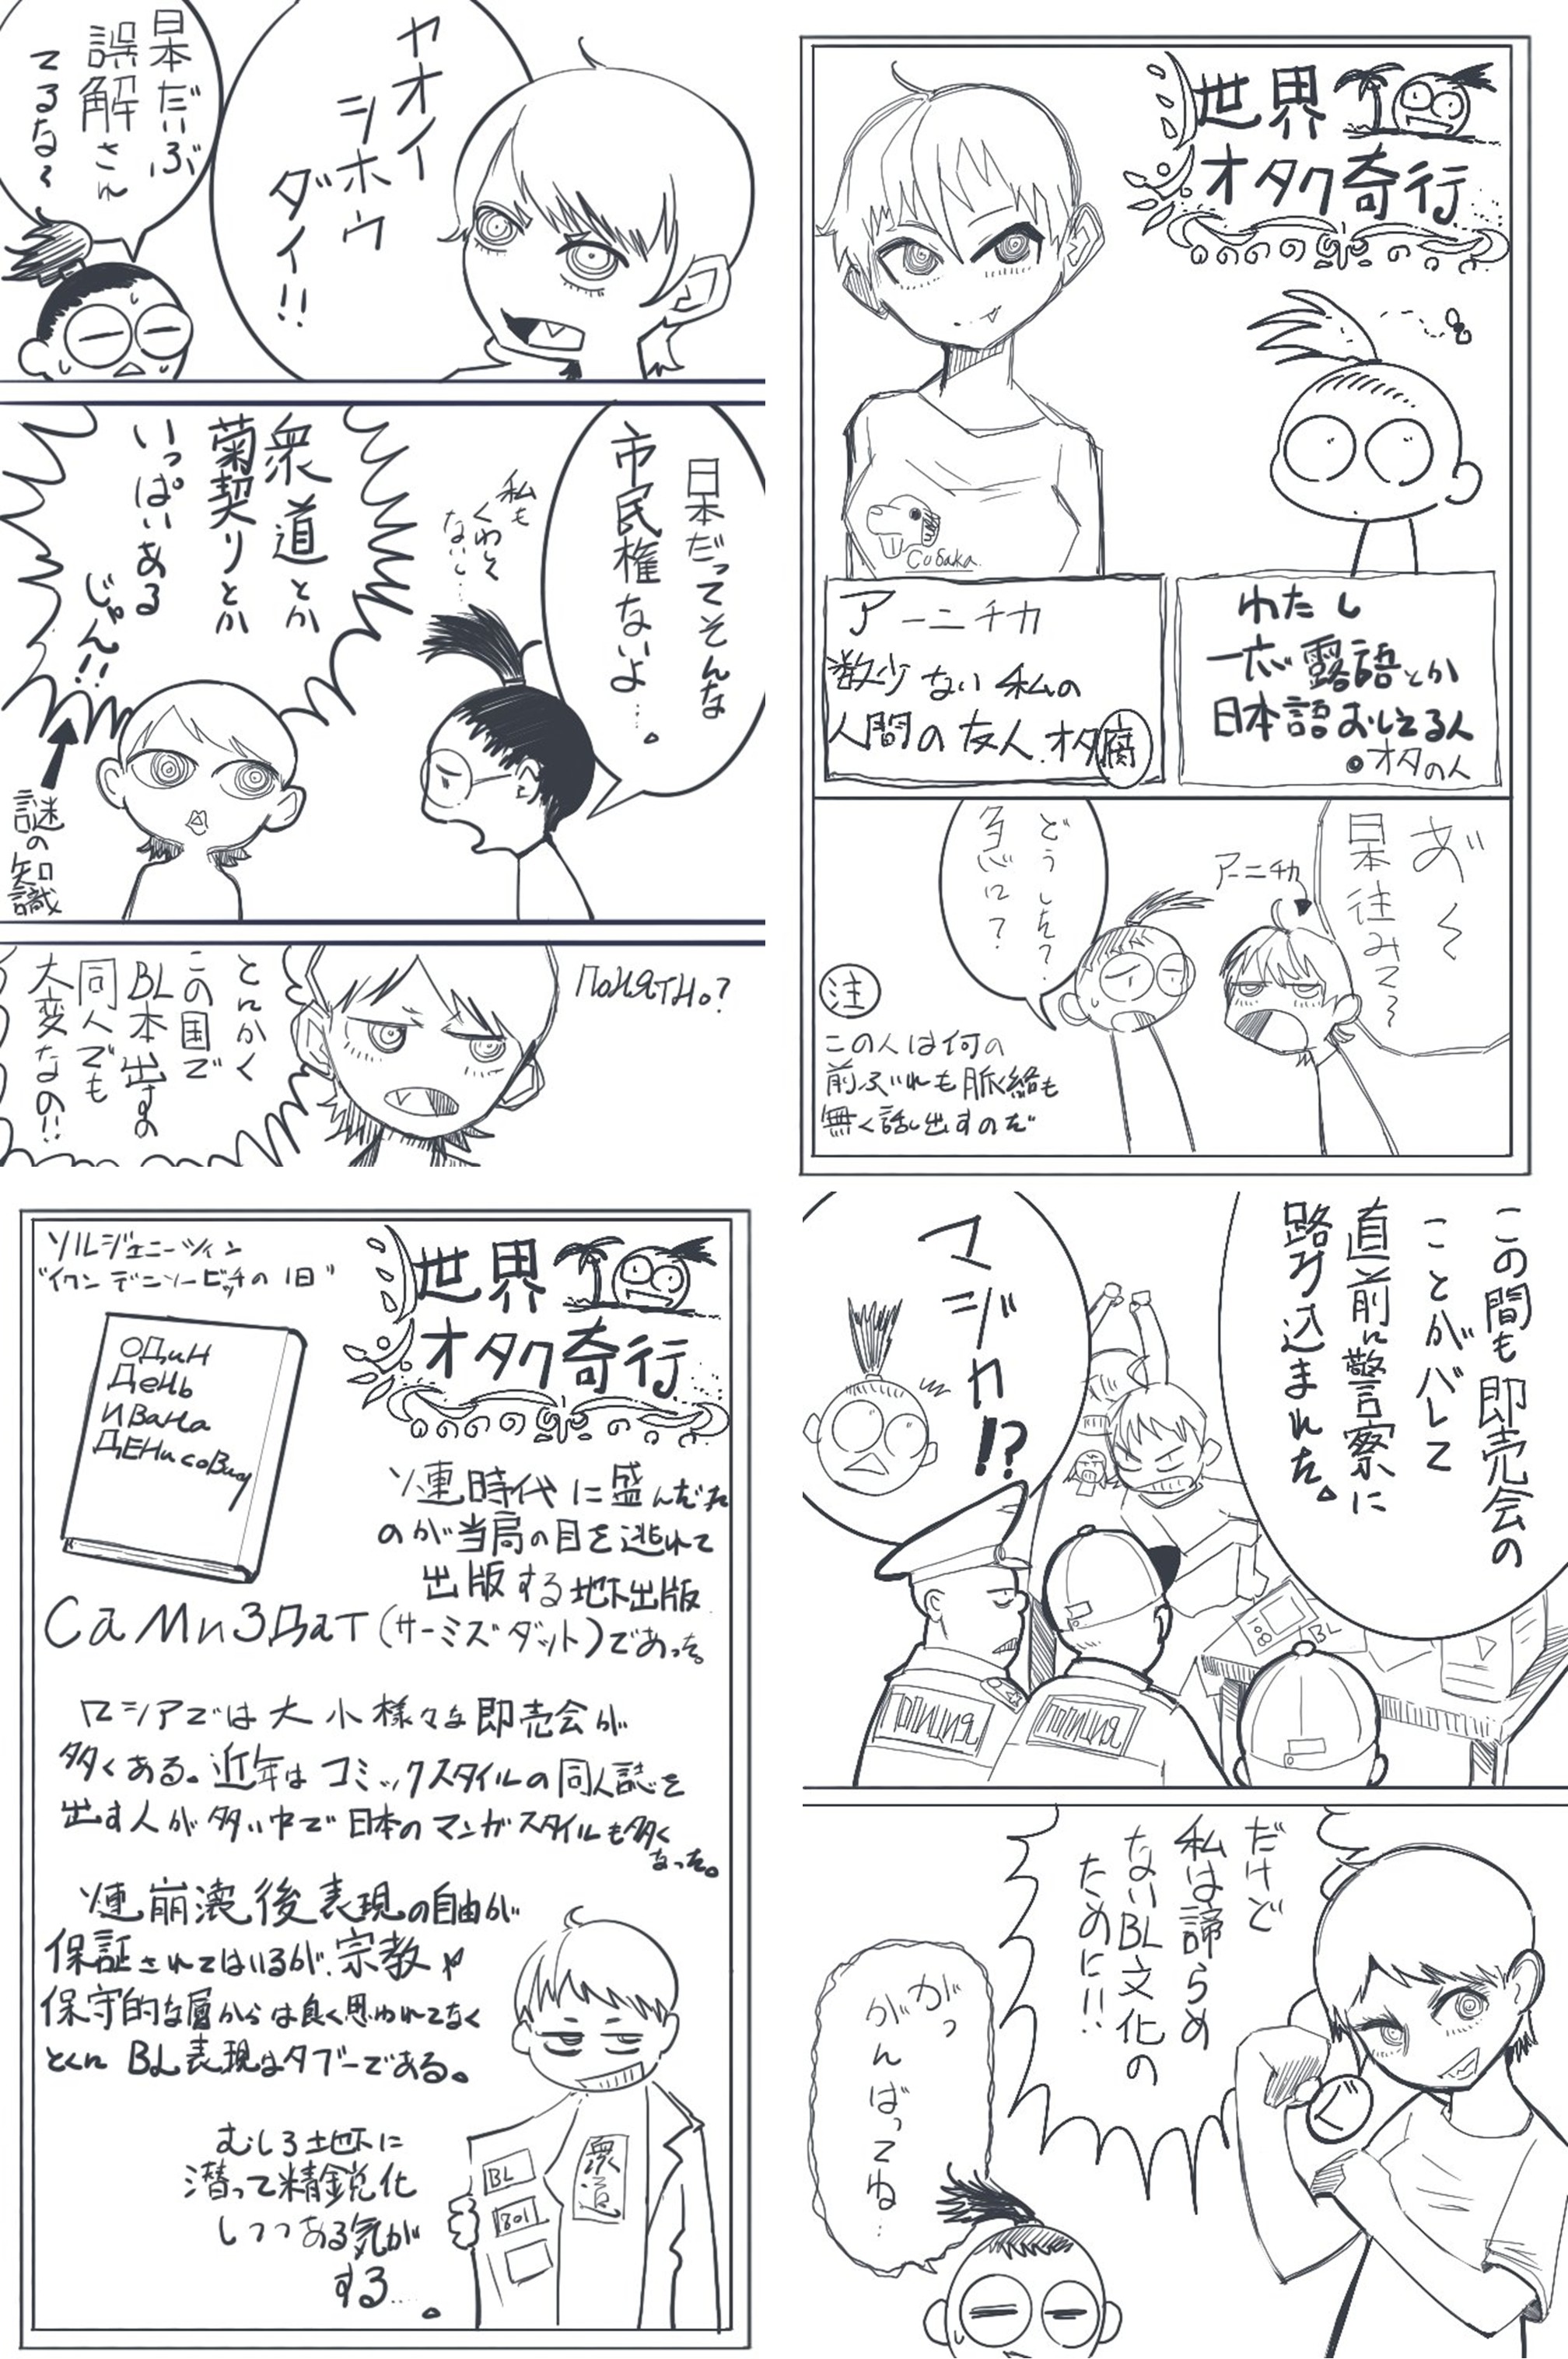 世界
オタク奇行
Cobaka
アーニチカ
数少ない私の
人間の友人.オタ腐
わたし
一応露語とか
日本語おしえる人
オタの人
あ゛〜
日本住みて〜
アーニチカ
どうした?
急に?
注
この人は何の
前ぶれも脈絡も
無く話し出すのだ
ヤオイ
シホウ
ダイ!!
日本だいぶ
誤解され
てるな〜
日本だってそんな
市民権ないよ…。
私も
くわしく
ないし…
衆道とか
菊契りとか
いっぱいある
じゃん!!
謎の知識
Понятно?
とにかく
この国で
BL本出すの
同人でも
大変なの!!
この間も即売会の
ことがバレて
直前に警察に
踏み込まれた。
マジカ!?
BL
だけど
私は諦らめ
ないBL文化の
ために!!
がっ
がんばってね…
世界
オタク奇行
ソルジェニーツィン
"イワンデニソービッチの1日"
Один
День
Ивана
Денисовича
ソ連時代に盛んだた
のが当局の目を逃れて
出版する地下出版
СаМиЗДаТ(サーミズダット)であった。
ロシアでは大小様々な即売会が
多くある。近年はコミックスタイルの同人誌を
出す人が多い中で日本のマンガスタイルも多く
なった。
ソ連崩壊後表現の自由が
保証されてはいるが、宗教や
保守的な層からは良く思われてなく
とくにBL表現はタブーである。
むしろ地下に
潜って精鋭化
しつつある気が
する…。
BL
801
衆道